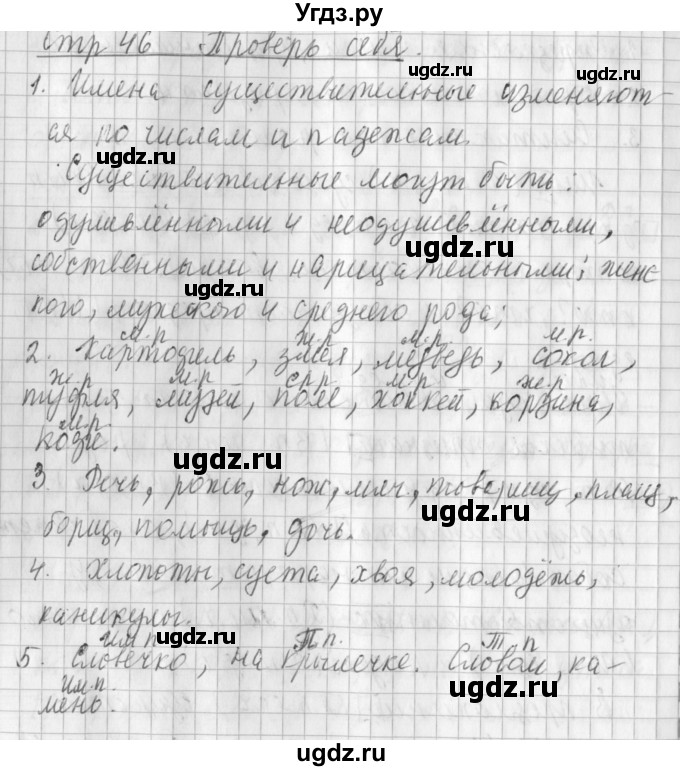 Угдз.ру
стр 46 Проверь себя.
ugdz.ru ugdz.ru
1. Имена существительные изменяют-
ся по числам и падежам.
ugdz.ru
Существительные могут быть:
одушевлёнными и неодушевлёнными,
ugdz.ru
собственными и нарицательными; женс
ugdz.ru
кого, мужского и среднего рода;
м.р. ж.р. м.р. м.р.
2. Картофель, змея, медведь, сокол,
ugdz.ru ugdz.ru
ж.р м.р ср.р. м.р ж.р.
туфля, музей, поле, хоккей, корзина,
м.р.
кофе.
ugdz.ru
3. Речь, рожь, нож, мяч, товарищ, плащ,
ugdz.ru
борщ, помощь, дочь.
4. Хлопоты, суета, хвоя, молодёжь,
каникулы.
Им п. ugdz.ru П п. Т п
5. Словечко, на крылечке. Словом, ка-
ugdz.ru
Им.п.
мень.
ugdz.ru
ugdz.ru